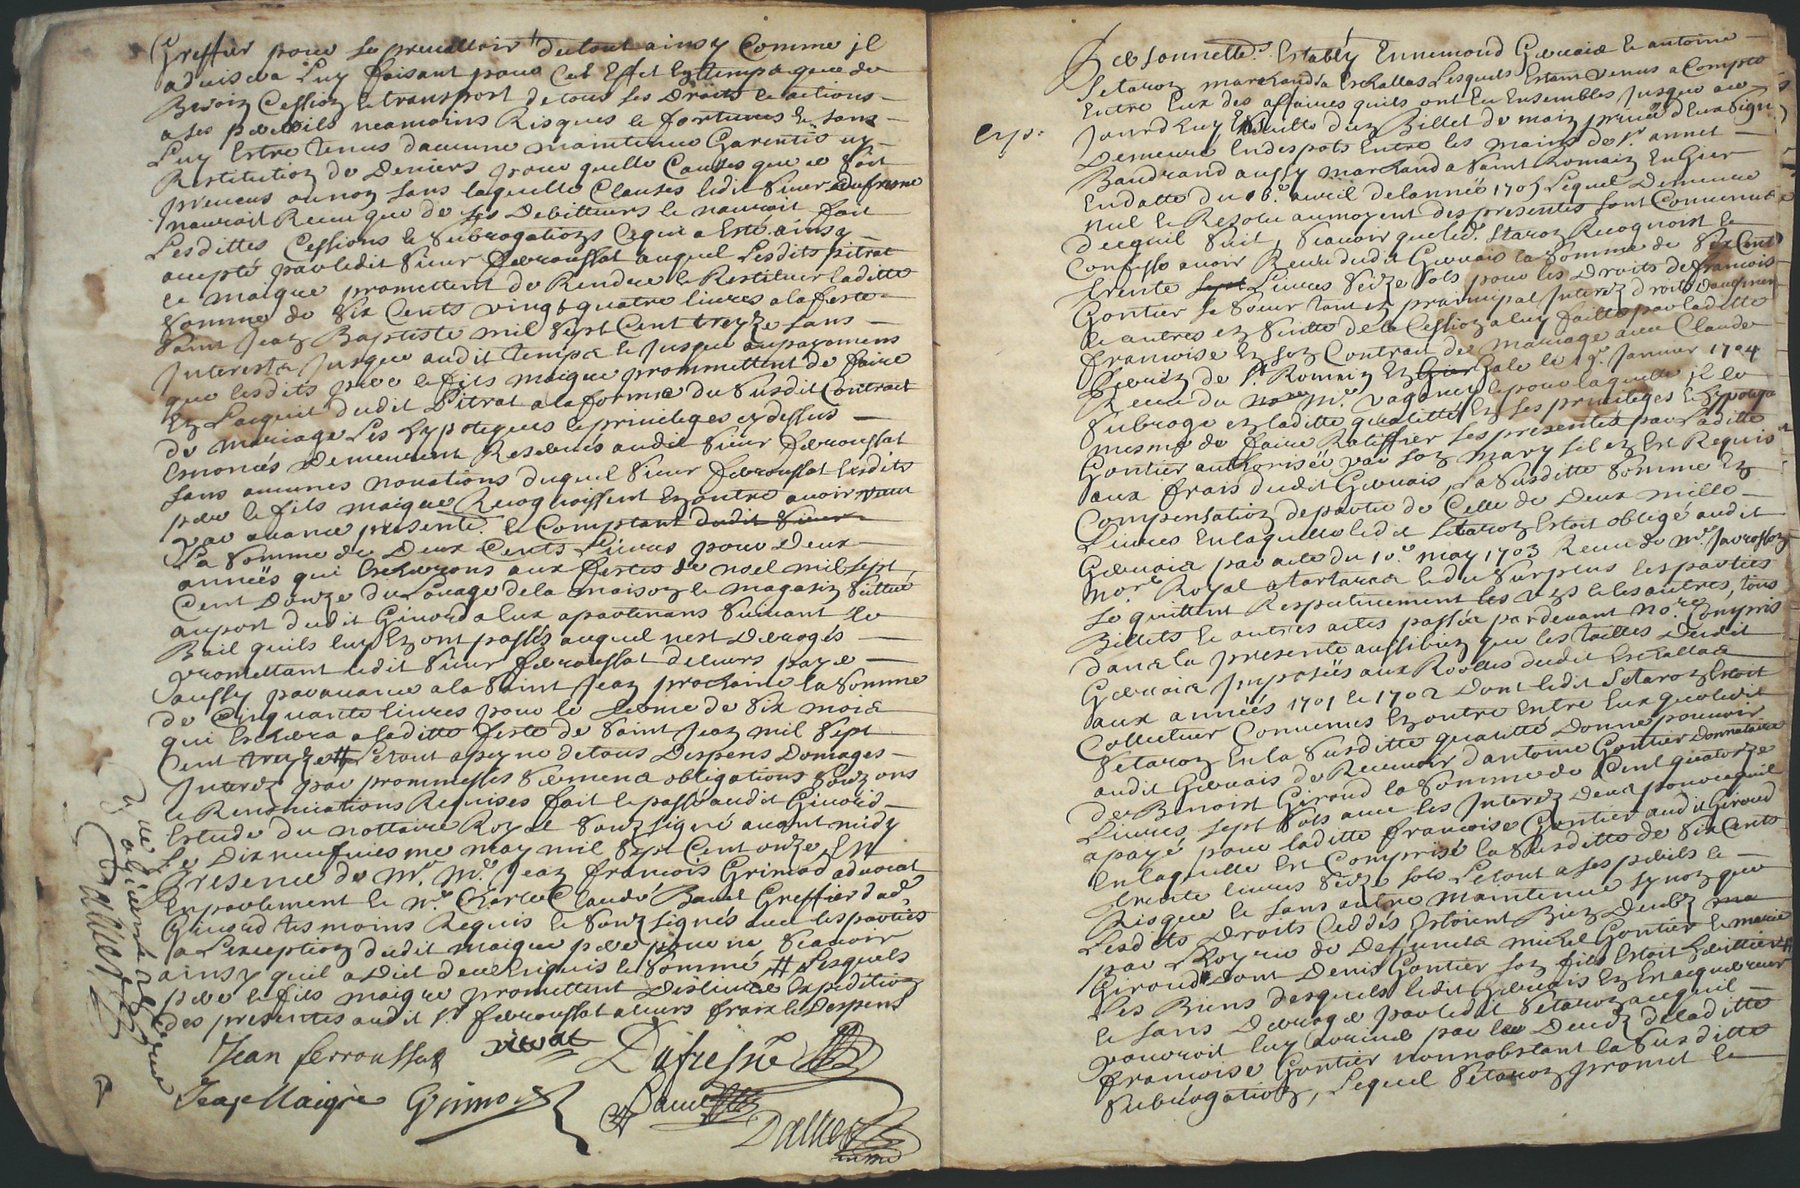 Greffier pour se prevalloir du tout ainsy Comme jl
advisera Luy faisant pour Cet Effet En temps que de
Besoin Cession et transport de tous ses Droits et actions
a ses perils neamoins Risques et fortunes Et sans
Luy Estre tenus daucune maintenue Garentie ny
Restitution de Deniers pour quelle Causes que ce soit
preveus ou non sans laquelle Clauses ledit sieur Dufresne
nauroit Receu que de ses Debitteurs et nauroit fait
Lesdittes Cessions et subrogations Ce qui a Esté ainsy
accepté par ledit sieur ferroussat auquel Lesdits pitrat
et maigre promettent de Rendre et Restituer laditte
somme de six Cents vingt quatre livres a la feste
saint Jean Baptiste mil sept Cent treyze sans
Interests jusque audit temps et jusque au payemens
que lesdits pere et fils maigre prommettent de faire
En Lacquit dudit Pitrat a la forme du susdit Contrait
de mariage Les hypoteques et privileges cy dessus
Enoncés Demeurent Reservés audit sieur ferroussat
sans aucunes novations duquel sieur ferroussat Lesdits
pere et fils maigre Recognoissent En outre avoir Receu
par avance presente et Comptant dudit sieur
La somme de Deux Cents Livres pour Deux
années qui Escherrons aux festes de noel mil sept
Cent Douze du Louage de la maison et magasin sittué
au port dudit Givord a Eux apartenans suivant le
Bail quils luy En ont passés auquel nest Derrogés
promettant ledit sieur ferroussat de leurs paye
aussy par avance a la saint Jean prochaine la somme
de Cinquante livres pour le terme de six mois
qui Eschera a laditte feste de saint Jean mil sept
Cent treyze # Le tout a peyne de tous Despens Domages
Interez par prommesses sermens obligations soumissions
et Renonciations Requises fait et passé audit Givord
Estude du nottaire Royal soubsigné avant midy
Le Dix neufviesme may mil sept Cent onze En
Presence de Mr. Me. Jean francois Grimod advocat
En parlement et Me. Charle Claude Baud Greffier dud.
Givord tesmoins Requis et soubsignés avec les parties
a Lexception dudit maigre pere pour ne scavoir
ainsy quil a Dit de ce Enquis et sommé # Lesquels
pere et fils maigre promettent Deslivrer Expedition
des presentes audit sr. ferroussat a leurs fraix et Despens
Jean ferroussat
Dufresne
Jean Maigre
Grimod
Baud
Dalliere
exp.
Personnellement. Estably Ennemond Gervais et antoine
Setaron marchands a Eschallas Lesquels Estant venus a Compte
Entre Eux des affaires quils ont Eu Ensembles Jusque au
Jourdhuy Ensuitte d'un Billet de main privée d'eux signé
Demeuré En despots Entre les mains de sr. annet
Baudrand aussy marchand a saint Romain En Gier
En datte du 18e. avril de lannée 1705 Lequel Demeure
nul et Resolu au moyent des presentes sont Convenus
de ce qui suit, scavoir que led. Setaron Recognoist et
Confesse avoir Receu dudit Gervais la somme de six Cent
trente Livres seize sols pour les Droits de francoise
Gontier sa sœur tant En principal Interez droits daugment
et autres En suitte de la Cession a luy faitte par laditte
francoise En son Contrait de mariage avec Claude
de st. Romain En le 19e. Janvier 1704
Receu du Me. vaganet et pour laquelle jl le
subroge En laditte quantitté En ses privileges Et hypoteques
mesme de faire Ratiffier les presentes par laditte
Gontier authorisée par son mary sil En Est Requis
aux frais dudit Gervais, La susditte somme En
Compensation de partie de Celle de Deux mille
Livres En laquelle ledit Setaron Estoit obligé audit
Gervais par acte du 10e. may 1703 Receu de Me.
Nore. Royal a tartaras et du surplus les parties
se quittent Respectivement les uns et les autres, tous
Billets et autres actes passés par devant nore. Compris
dans la presente aussi bien que les tailles dudit
Gervais Imposées aux Rooles dudit Eschallas
aux années 1701 et 1702 Dont ledit Setaron Estoit
Collecteur Convenus En outre Entre Eux que ledit
Setaron En la susditte quantitté Donne pouvoir
audit Gervais de Recevoir dantoine Gontier Donnataire
de Benoist Giroud la somme de Cent quatorze
Livres sept sols avec les Interez deus pour ce quil
a payé pour laditte francoise Gontier audit Giroud
En laquelle Est Comprise la susditte de six Cents
trente livres seize sols Le tout a ses perils et
Risques et sans autre maintenue synon que
Lesdits Droits Ceddés Estoient Bien Deubz
par Lhoyrie de Deffuncts michel Gontier et marie
Giroud dont Denis Gontier son fils Estoit heritier #
Les Biens desquels ledit Gervais En Est acquereur
et sans Deroger par ledit Setaron a ce quil
pourroit luy avenir par le Deceds de laditte
francoise Gontier nonnobstant la susditte
subrogation, Lequel Setaron promet et